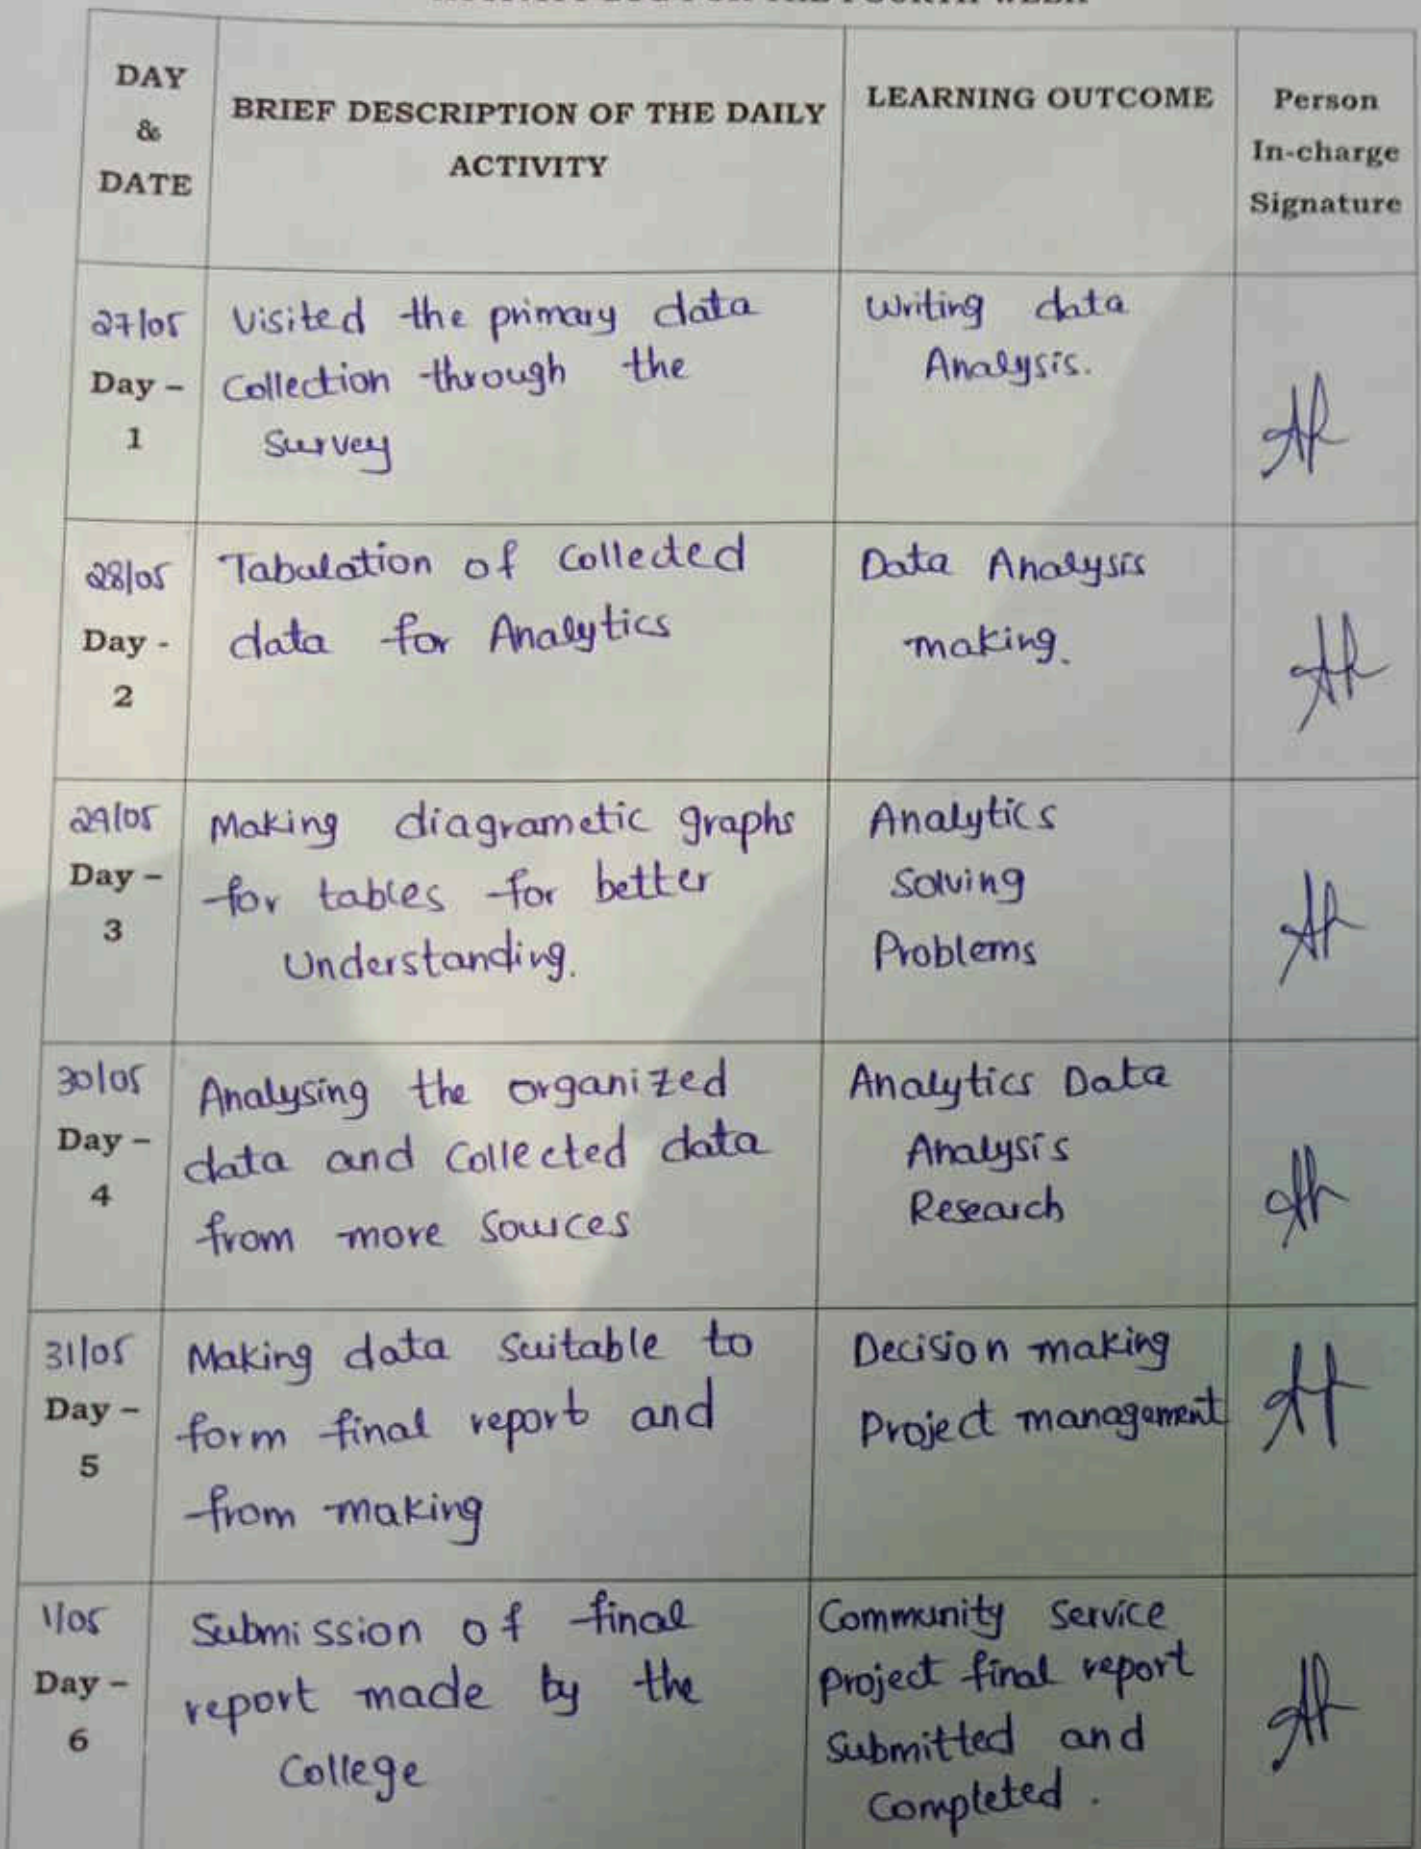 ACTIVITY LOG FOR THE FOURTH WEEK
DAY
&
DATE
BRIEF DESCRIPTION OF THE DAILY
ACTIVITY
LEARNING OUTCOME
Person
In-charge
Signature
27/05
Day –
1
Visited the primary data
Collection through the
Survey
Writing data
Analysis.
28/05
Day -
2
Tabulation of Collected
data for Analytics
Data Analysis
making.
29/05
Day –
3
Making diagrametic graphs
for tables for better
Understanding.
Analytics
Solving
Problems
30/05
Day –
4
Analysing the organized
data and Collected data
from more Sources
Analytics Data
Analysis
Research
31/05
Day –
5
Making data Suitable to
form final report and
from making
Decision making
Project management
1/05
Day –
6
Submission of final
report made by the
College
Community Service
Project final report
Submitted and
Completed.